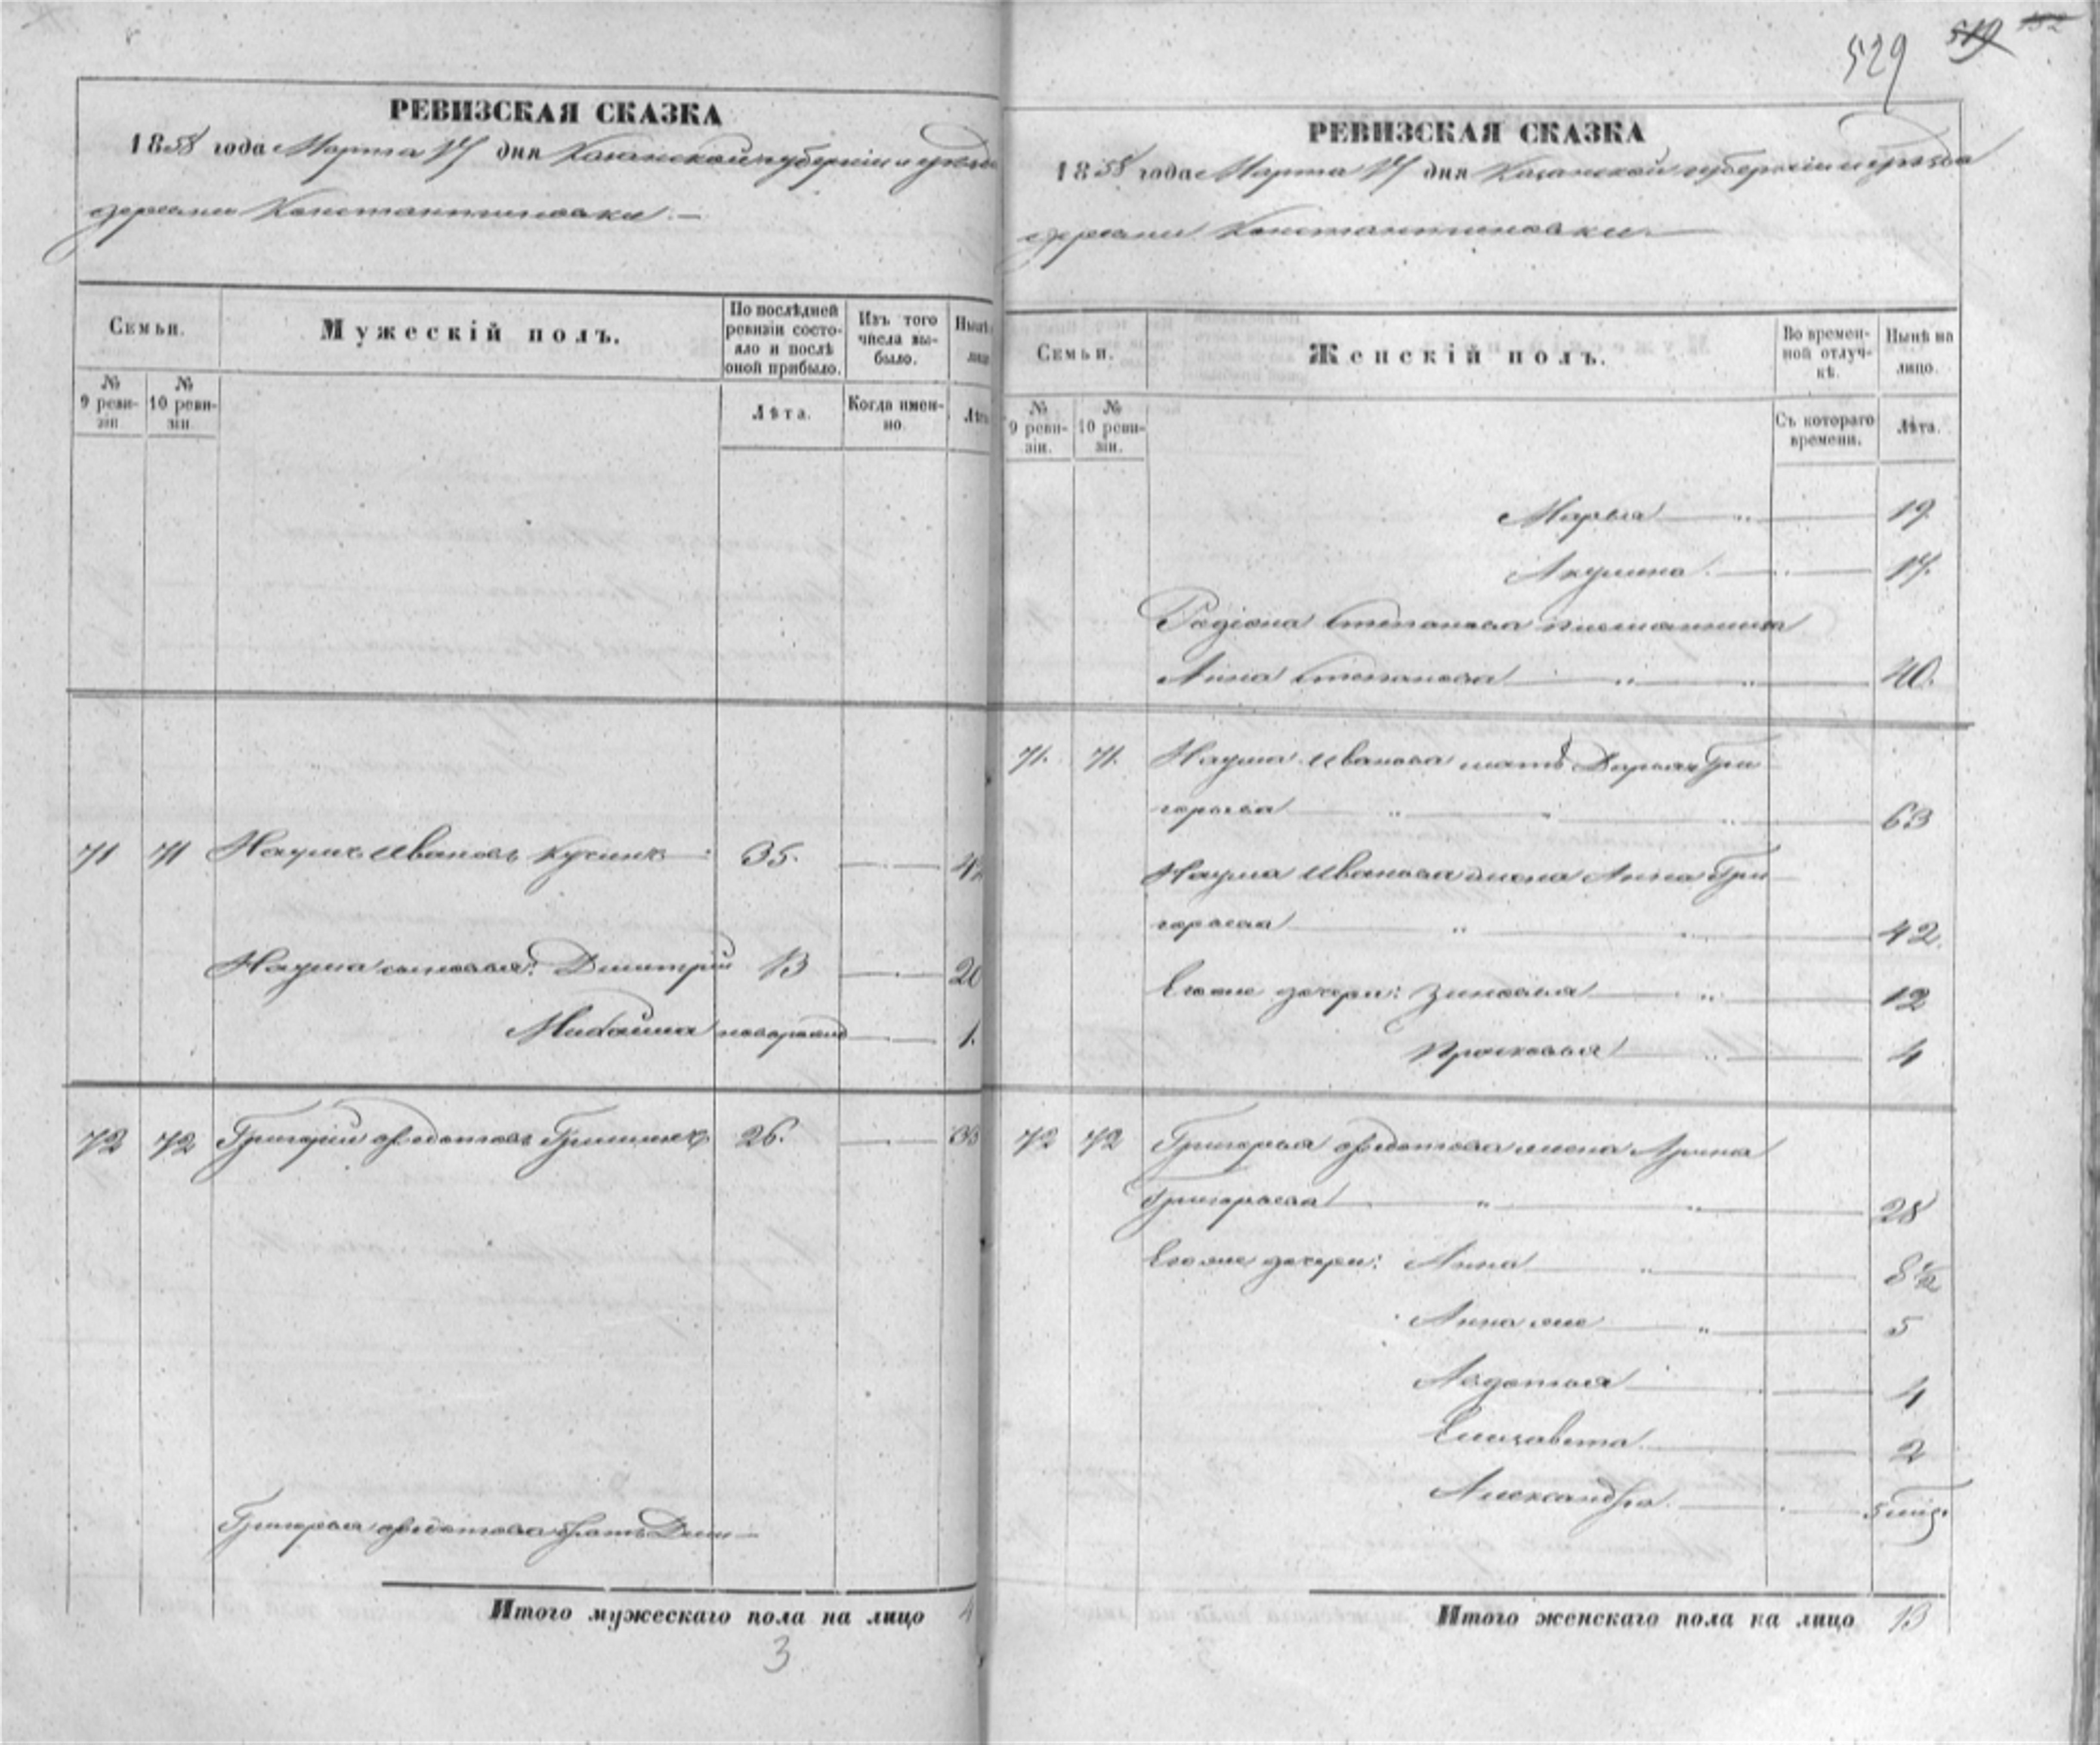 529 519 152
РЕВИЗСКАЯ СКАЗКА
1858 года Марта 17 дня Казанской губерніи и уѣзда
деревни Константиновки.
Семьи.
Мужескій полъ.
По послѣдней ревизіи состояло и послѣ оной прибыло.
Изъ того числа выбыло.
№ 9 ревизіи
№ 10 ревизіи.
Лѣта.
Когда именно.
71 71 Наумъ Ивановъ 35.
Наума сыновья: Дмитрій 13 20
новорожд 1.
72 72 Григорій Федотовъ Гришинъ 26. 33
Григорья Федотова братъ Дми-
Итого мужескаго пола на лицо 4
3
РЕВИЗСКАЯ СКАЗКА
1858 года Марта 17 дня Казанской губерніи и уѣзда
деревни Константиновки.
Семьи.
Женскій полъ.
Во временной отлучкѣ.
Нынѣ на лицо.
№ 9 ревизіи.
№ 10 ревизіи.
Съ котораго времени.
Лѣта.
Марья 19
Акулина 17.
Родіона Степанова племянница
Анна Степанова 40.
71. 71. Наума Иванова мать Дарья Гри
горьева 63
Наума Иванова жена Анна Гри
горьева 42.
Его же дочери: Зиновья 12
Прасковья 4
72 72 Григорья Федотова жена Арина
Григорьева 28
Его же дочери: Анна 8½
Анна же 5
Авдотья 4
Елизавета 2
Александра 5 мѣц.
Итого женскаго пола на лицо 13